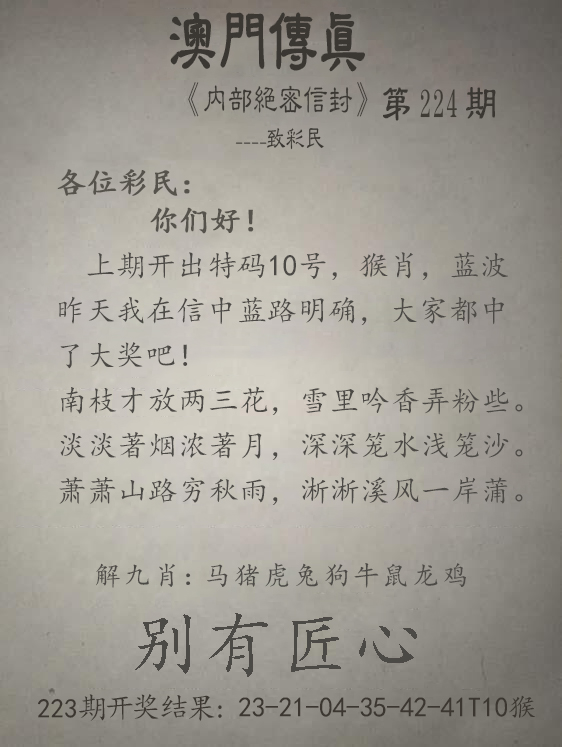 澳門傳眞
《内部絕密信封》第224期
----致彩民
各位彩民：
你们好！
上期开出特码10号，猴肖，蓝波
昨天我在信中蓝路明确，大家都中
了大奖吧！
南枝才放两三花，雪里吟香弄粉些。
淡淡著烟浓著月，深深笼水浅笼沙。
萧萧山路穷秋雨，淅淅溪风一岸蒲。
解九肖：马猪虎兔狗牛鼠龙鸡
别有匠心
223期开奖结果：23-21-04-35-42-41T10猴